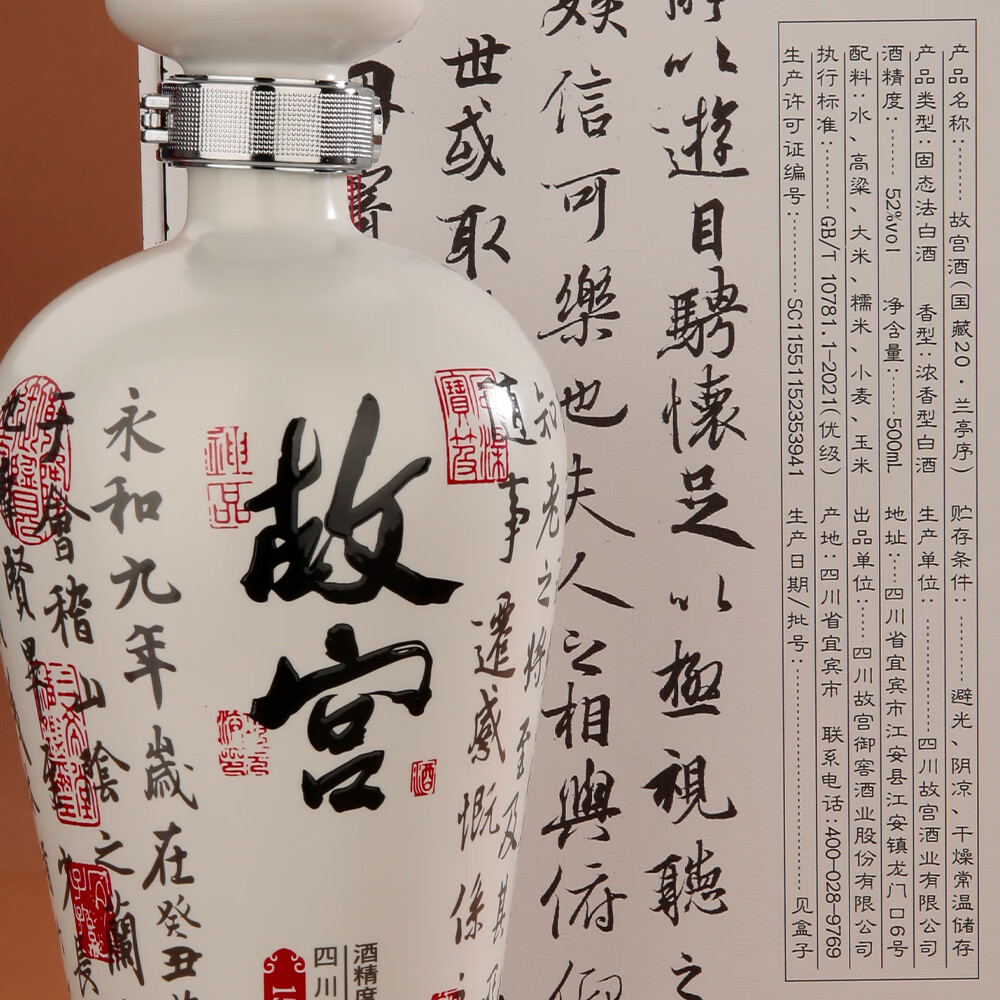 产品名称:……故宫酒(国藏20·兰亭序)
产品类型:固态法白酒 香型:浓香型白酒
酒精度:……52%vol 净含量:……500mL
配料:水、高粱、大米、糯米、小麦、玉米
执行标准:……GB/T 10781.1-2021(优级)
生产许可证编号:……SC11551152353941
贮存条件:……避光、阴凉、干燥常温储存
生产单位:……四川故宫酒业有限公司
地址:…四川省宜宾市江安县江安镇龙门口6号
出品单位:……四川故宫御窖酒业股份有限公司
产地:四川省宜宾市 联系电话:400-028-9769
生产日期/批号:……见盒子
以遊目騁懷足以極視聽之
娱信可樂也夫人之相與俯仰
世或取
知老之将至及其
随事遷感慨係
故宫
酒
神品
永和九年歲在癸丑
于會稽山陰之蘭
賢畢
長
酒精度
四川